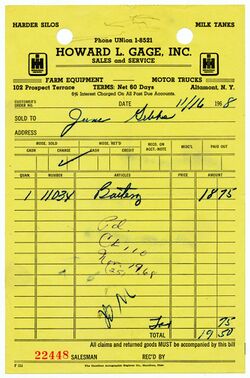 HARDER SILOS MILK TANKS
Phone UNion 1-8521
IH HOWARD L. GAGE, INC. IH
SALES and SERVICE
FARM EQUIPMENT MOTOR TRUCKS
102 Prospect Terrace TERMS: Net 60 Days Altamont, N. Y.
6% Interest Charged on All Past Due Accounts.
CUSTOMER'S ORDER NO. DATE 11/16 1968
SOLD TO June
ADDRESS
MDSE. SOLD MDSE. RET'D RECD. ON ACCT.-NOTE MDSE. PAID OUT
CASH CHARGE CASH CREDIT
QUAN. NUMBER ARTICLES PRICE AMOUNT
1 11034 Battery 18 75
Pd.
Ck 110
Nov. 1968
25
Tax 75
TOTAL 19 50
All claims and returned goods MUST be accompanied by this bill
22448 SALESMAN REC'D BY